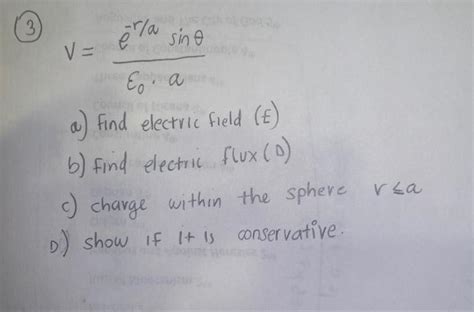 3
V = e^-r/a sinθ
ε₀ . a
a) Find electric field (E)
b) find electric flux (D)
c) charge within the sphere r≤a
D) show if It Is conservative.